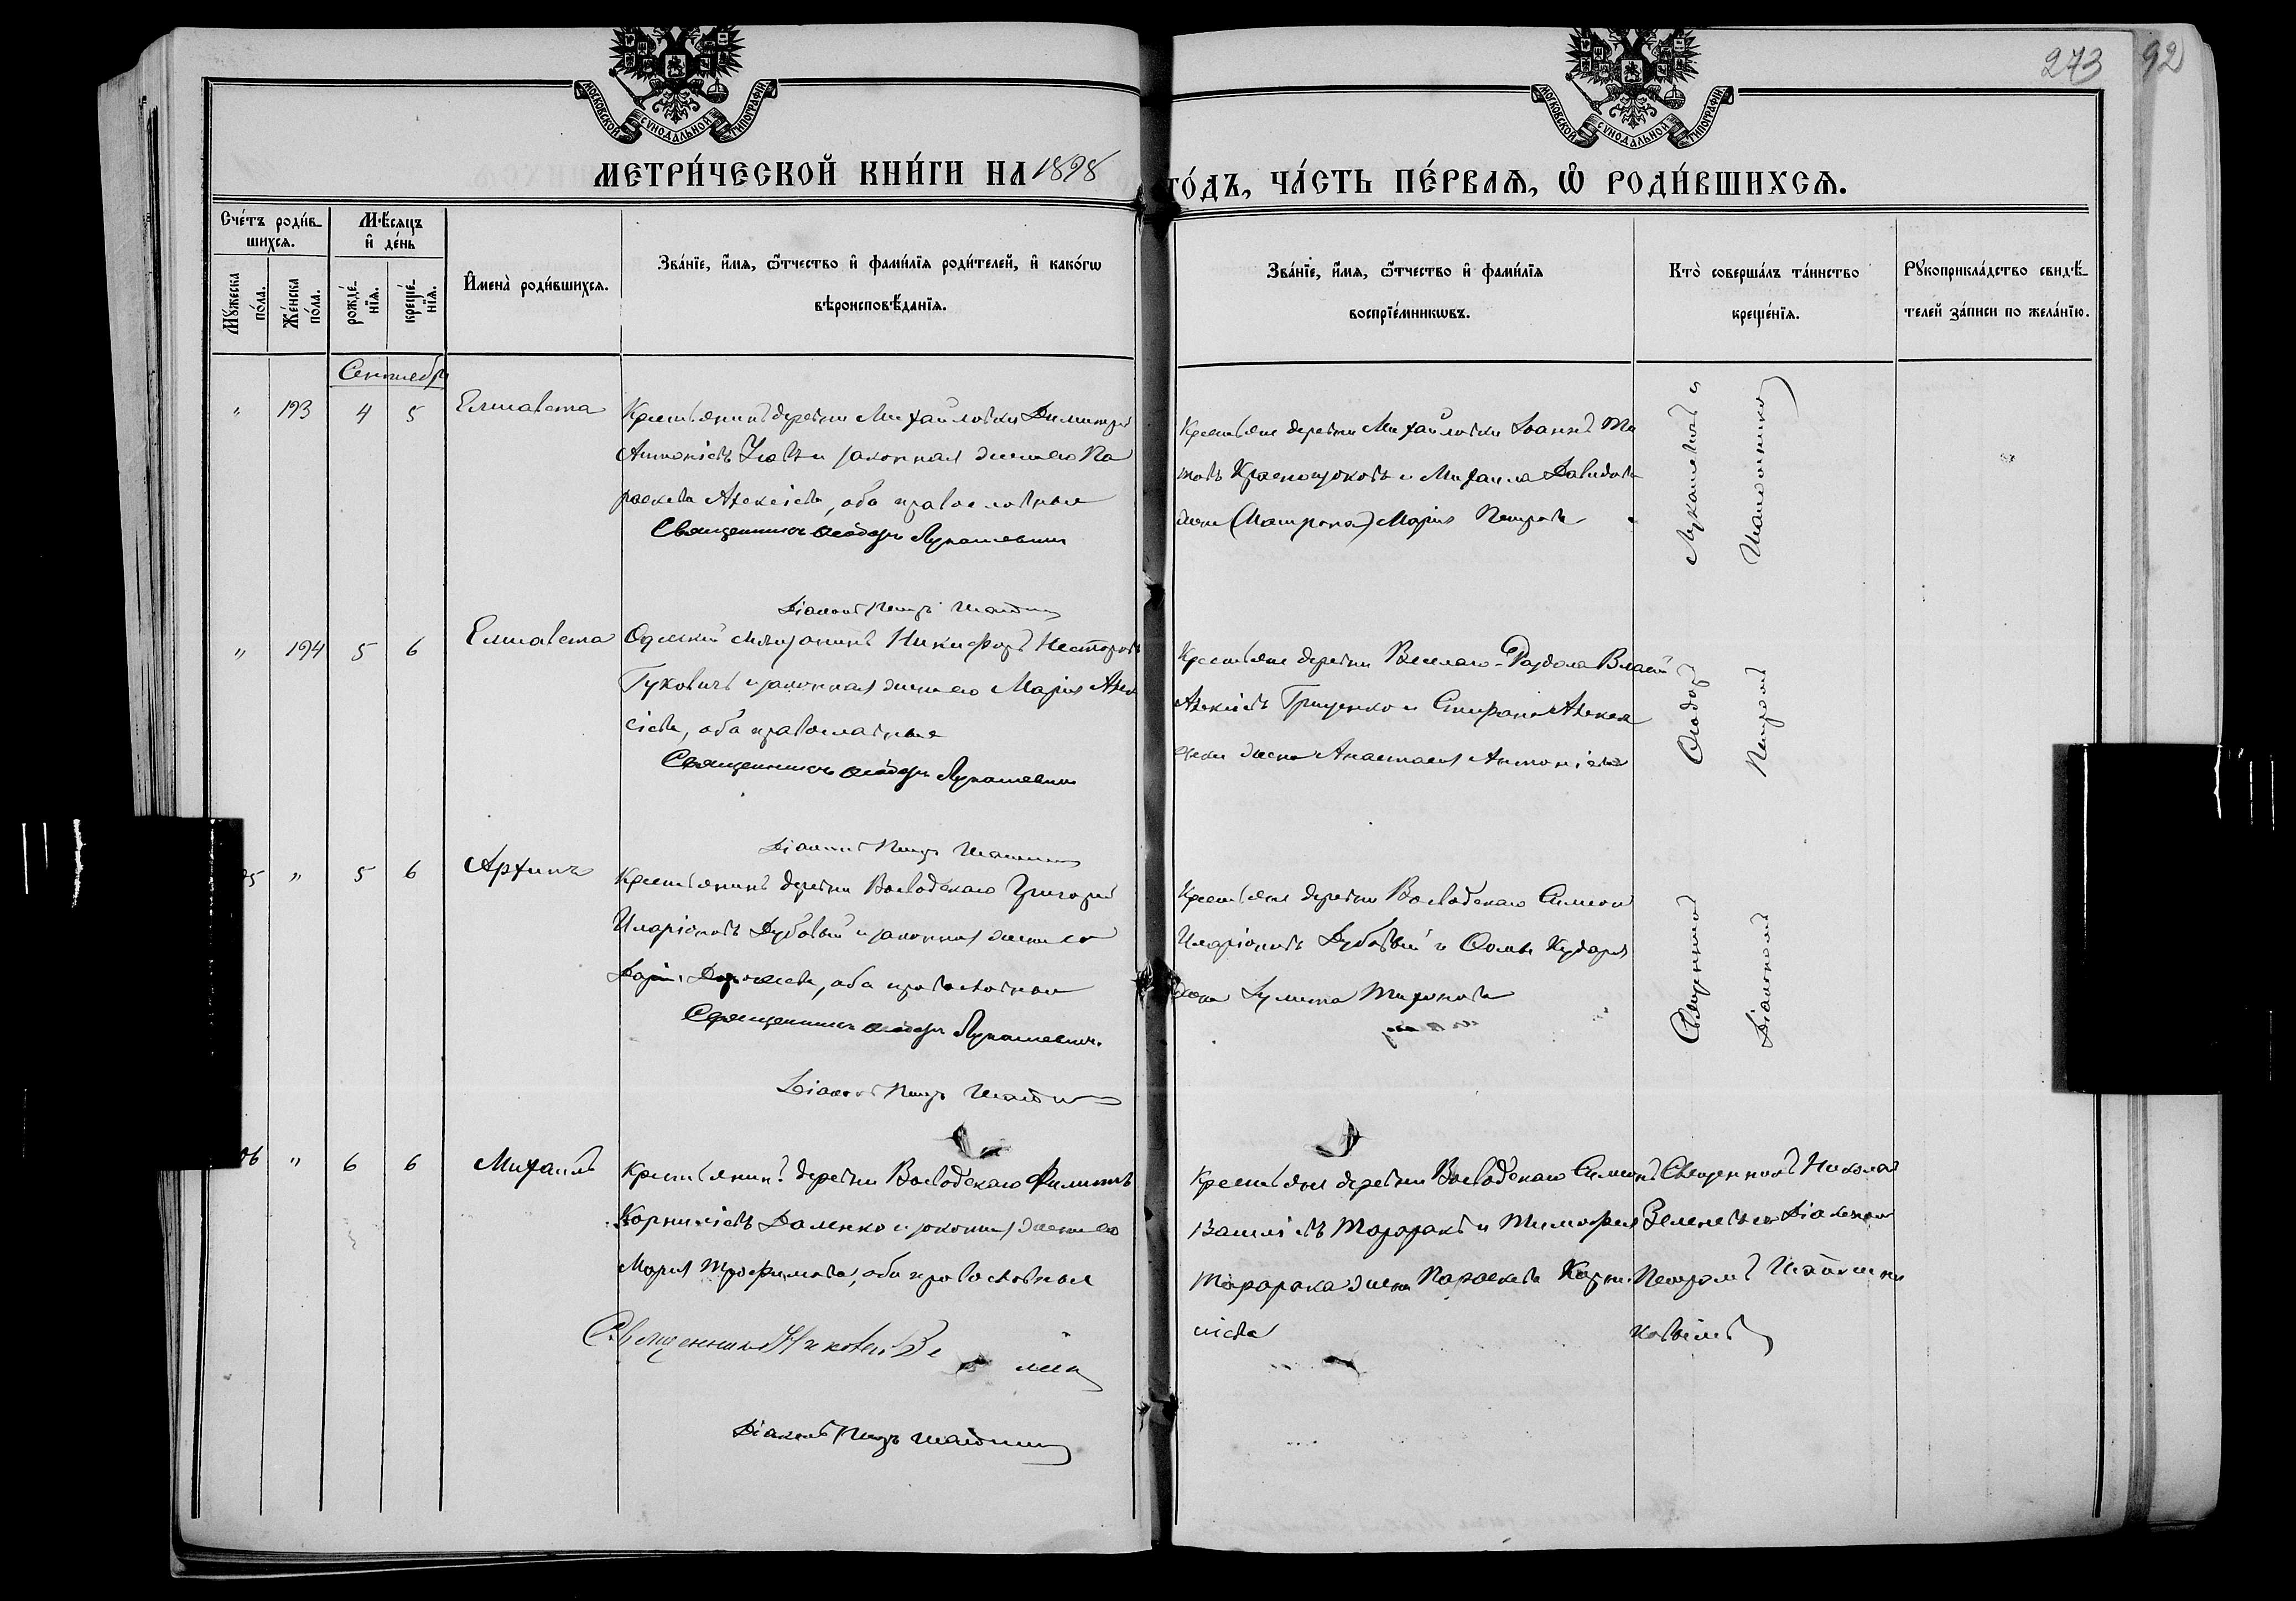 273 92
МОСКОВСКОЙ СѴНОДАЛЬНОЙ ТИПОГРАФІИ
МОСКОВСКОЙ СѴНОДАЛЬНОЙ ТИПОГРАФІИ
МЕТРИ́ЧЕСКОЙ КНИ́ГИ НА 1898 ГО́ДЪ, ЧА́СТЬ ПЕ́РВАѦ, Ѽ РОДИ́ВШИХСѦ.
Сче́тъ роди́в-
шихсѧ.
Мꙋ́жеска
по́ла.
Же́нска
по́ла.
Мѣ́сѧцъ
и҆ де́нь
рожде́-
нїѧ.
креще́-
нїѧ.
И҆мена̀ роди́вшихсѧ.
Зва́нїе, и҆́мѧ, ѻ҆́тчество и҆ фами́лїѧ роди́телей, и҆ како́гѡ
вѣроисповѣ́данїѧ.
Зва́нїе, и҆́мѧ, ѻ҆́тчество и҆ фами́лїѧ
воспрїе́мникѡвъ.
Кто̀ соверша́лъ та́инство
креще́нїѧ.
Рꙋкоприкла́дство свидѣ́-
телей за́писи по жела́нїю.
Сентябрь
" 193 4 5 Елисавета
Крестьянинъ деревни Михайловки Димитрій
Антоніевъ и законная жена его Па
раскева Алексіева, оба православные
Священникъ Ѳеодоръ Лукашевичъ
Діаконъ Петръ
Крестьяне деревни Михайловки Іоаннъ Ти
товъ Краснощоковъ и Михаила Давидова
жена (Матрона) Марія Петрова
" 194 5 6 Елисавета
Одесскій мѣщанинъ Никифоръ Несторовъ
Гуковичъ и законная жена его Марія Алек
сіева, оба православные
Священникъ Ѳеодоръ Лукашевичъ
Діаконъ Петръ
Крестьяне деревни Веселаго-Раздола Власій
Алексіевъ Грищенко и Стефана Алексе
енки жена Анастасія Антоніева
" 5 6 Архипъ
Крестьянинъ деревни Воеводскаго Григорій
Иларіоновъ Дубовый и законная жена его
Дарія, оба православные
Священникъ Ѳеодоръ Лукашевичъ.
Діаконъ Петръ
Крестьяне деревни Воеводскаго Симеонъ
Иларіоновъ Дубовый и Ѳомы Кухаря
жена Іулитта Тихонова
Священникъ Ѳеодоръ Лукашевичъ и
Діакономъ Петромъ
" 6 6 Михаилъ
Крестьянинъ деревни Воеводскаго Филиппъ
Корниліевъ Даленко и законная жена его
Марія Трофимова, оба православные
Священникъ Николай
Діаконъ Петръ
Крестьяне деревни Воеводскаго Симеонъ
Василіевъ Тараракъ и Тимофея
Тарарака жена Параскева Корни
ліева
Священникъ Николай
съ Діакономъ
Петромъ